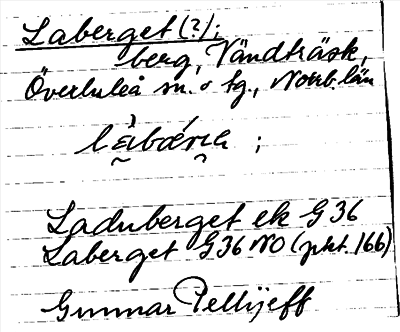 Laberget (?);
berg, Vändträsk,
Överluleå sn. o tg., Norrb. län
;
Laduberget ek G36
Laberget G36 NO (pkt. 166)
Gunnar Pellijeff